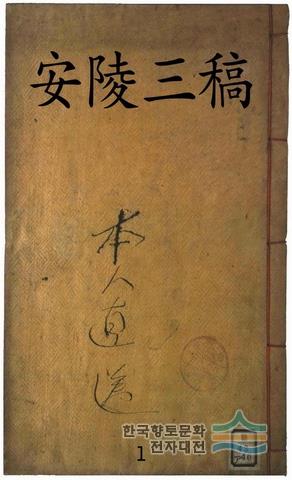 安陵三稿
本人直送
한국향토문화
전자대전
1